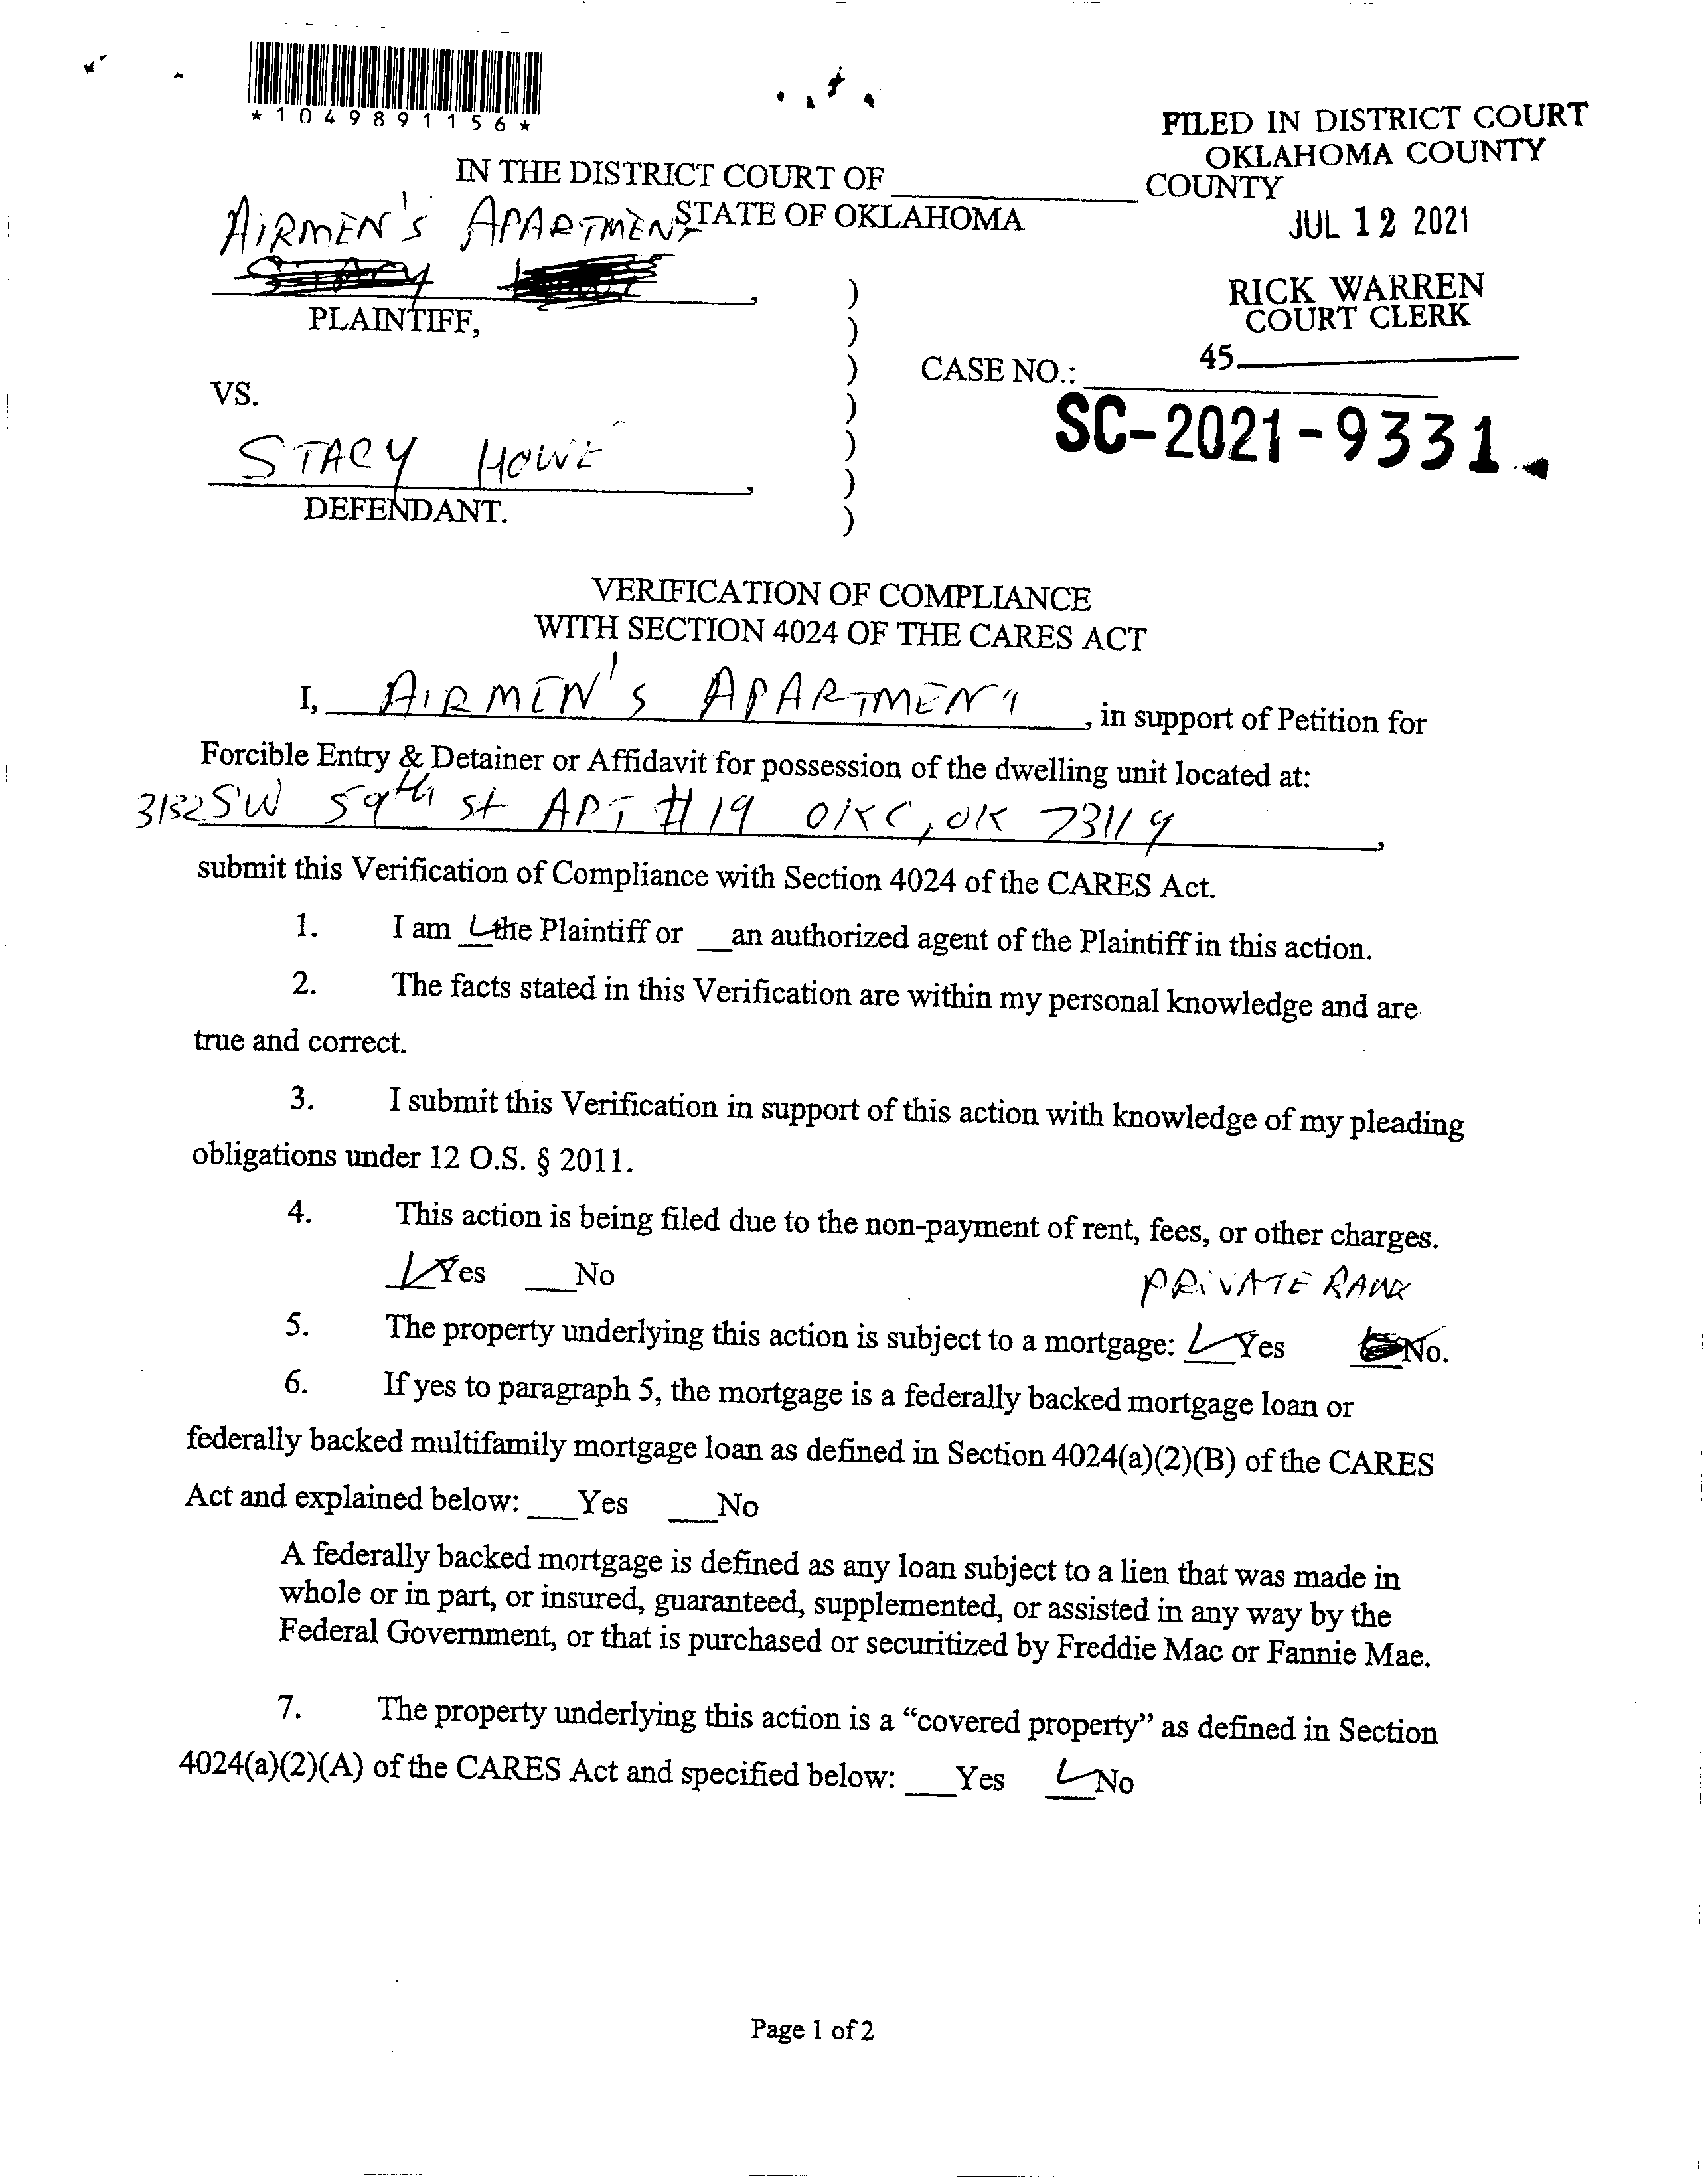 *1049891156*
FILED IN DISTRICT COURT
OKLAHOMA COUNTY
IN THE DISTRICT COURT OF ____________ COUNTY
STATE OF OKLAHOMA
JUL 12 2021
RICK WARREN
COURT CLERK
45
AIRMEN'S APARTMENT
PLAINTIFF,
VS.
CASE NO.:
SC-2021-9331
STACY HOWE,
DEFENDANT.
VERIFICATION OF COMPLIANCE
WITH SECTION 4024 OF THE CARES ACT
I, AIRMEN'S APARTMENT, in support of Petition for
Forcible Entry & Detainer or Affidavit for possession of the dwelling unit located at:
3132 SW 59th St APT #19 OKC, OK 73119,
submit this Verification of Compliance with Section 4024 of the CARES Act.
1. I am __the Plaintiff or __an authorized agent of the Plaintiff in this action.
2. The facts stated in this Verification are within my personal knowledge and are
true and correct.
3. I submit this Verification in support of this action with knowledge of my pleading
obligations under 12 O.S. § 2011.
4. This action is being filed due to the non-payment of rent, fees, or other charges.
___Yes ___No
PRIVATE BANK
5. The property underlying this action is subject to a mortgage: ___Yes ___No.
6. If yes to paragraph 5, the mortgage is a federally backed mortgage loan or
federally backed multifamily mortgage loan as defined in Section 4024(a)(2)(B) of the CARES
Act and explained below: ___Yes ___No
A federally backed mortgage is defined as any loan subject to a lien that was made in
whole or in part, or insured, guaranteed, supplemented, or assisted in any way by the
Federal Government, or that is purchased or securitized by Freddie Mac or Fannie Mae.
7. The property underlying this action is a “covered property” as defined in Section
4024(a)(2)(A) of the CARES Act and specified below: ___Yes ___No
Page 1 of 2